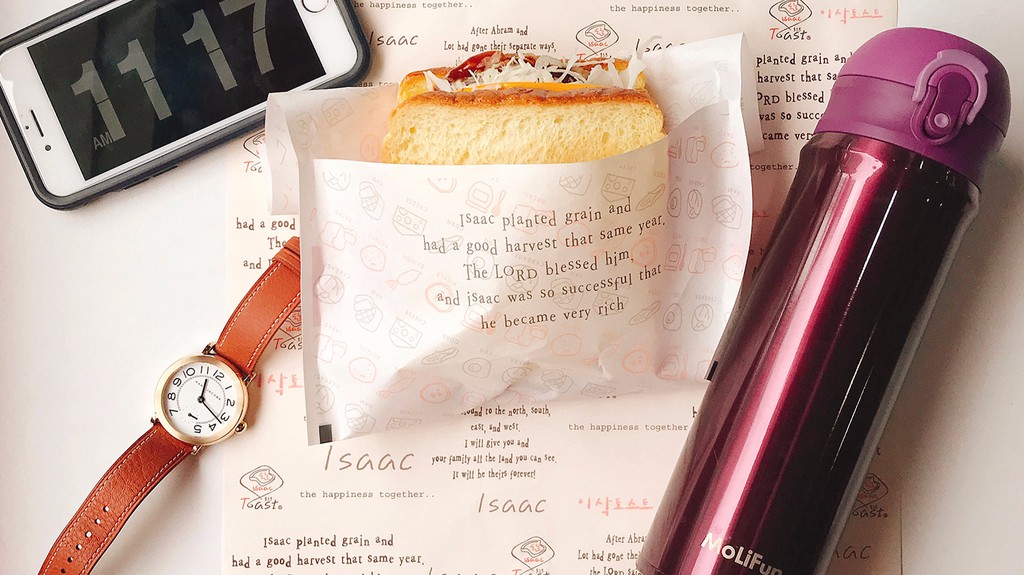 the happiness together..
the happiness together..
11 17
AM
After Abram and
Lot had gone their separate ways,
Isaac
Isaac
Toast
이삭토스트
planted grain and
harvest that same
LORD blessed
became very
Isaac planted grain and
had a good harvest that same year.
The LORD blessed him,
and isaac was so successful that
he became very rich
had a good
The
and
12 1 2 3 4 5 7 8 9 10 11
to the north, south,
east, and west.
I will give you and
your family all the land you can see.
It will be theirs forever!
the happiness together
Isaac
Isaac
Toast
the happiness together..
Isaac
이삭토스트
Isaac planted grain and
had a good harvest that same year.
The LORD blessed him,
Isaac
After Abram
Lot had gone their
the LORD said
MoLiFun